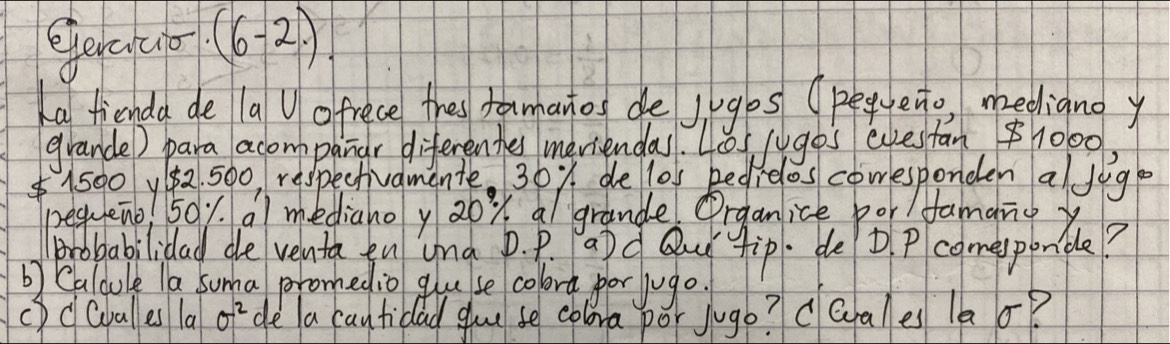 Ejercicio. (6-2.).
La tienda de la U ofrece tres tamaños de jugos (pequeño, mediano y
grande) para acompañar diferentes meriendas. Los jugos cuestan $1000,
$1500 y $2.500, respectivamente. 30% de los pedidos corresponden al jugo
pequeño, 50% al mediano y 20% al grande. Organice por tamaño y
probabilidad de venta en una D.P. a) ¿Qué tipo de D.P corresponde?
b) Calcule la suma promedio que se cobra por jugo.
c) ¿Cual es la σ² de la cantidad que se cobra por jugo? ¿Cual es la σ?